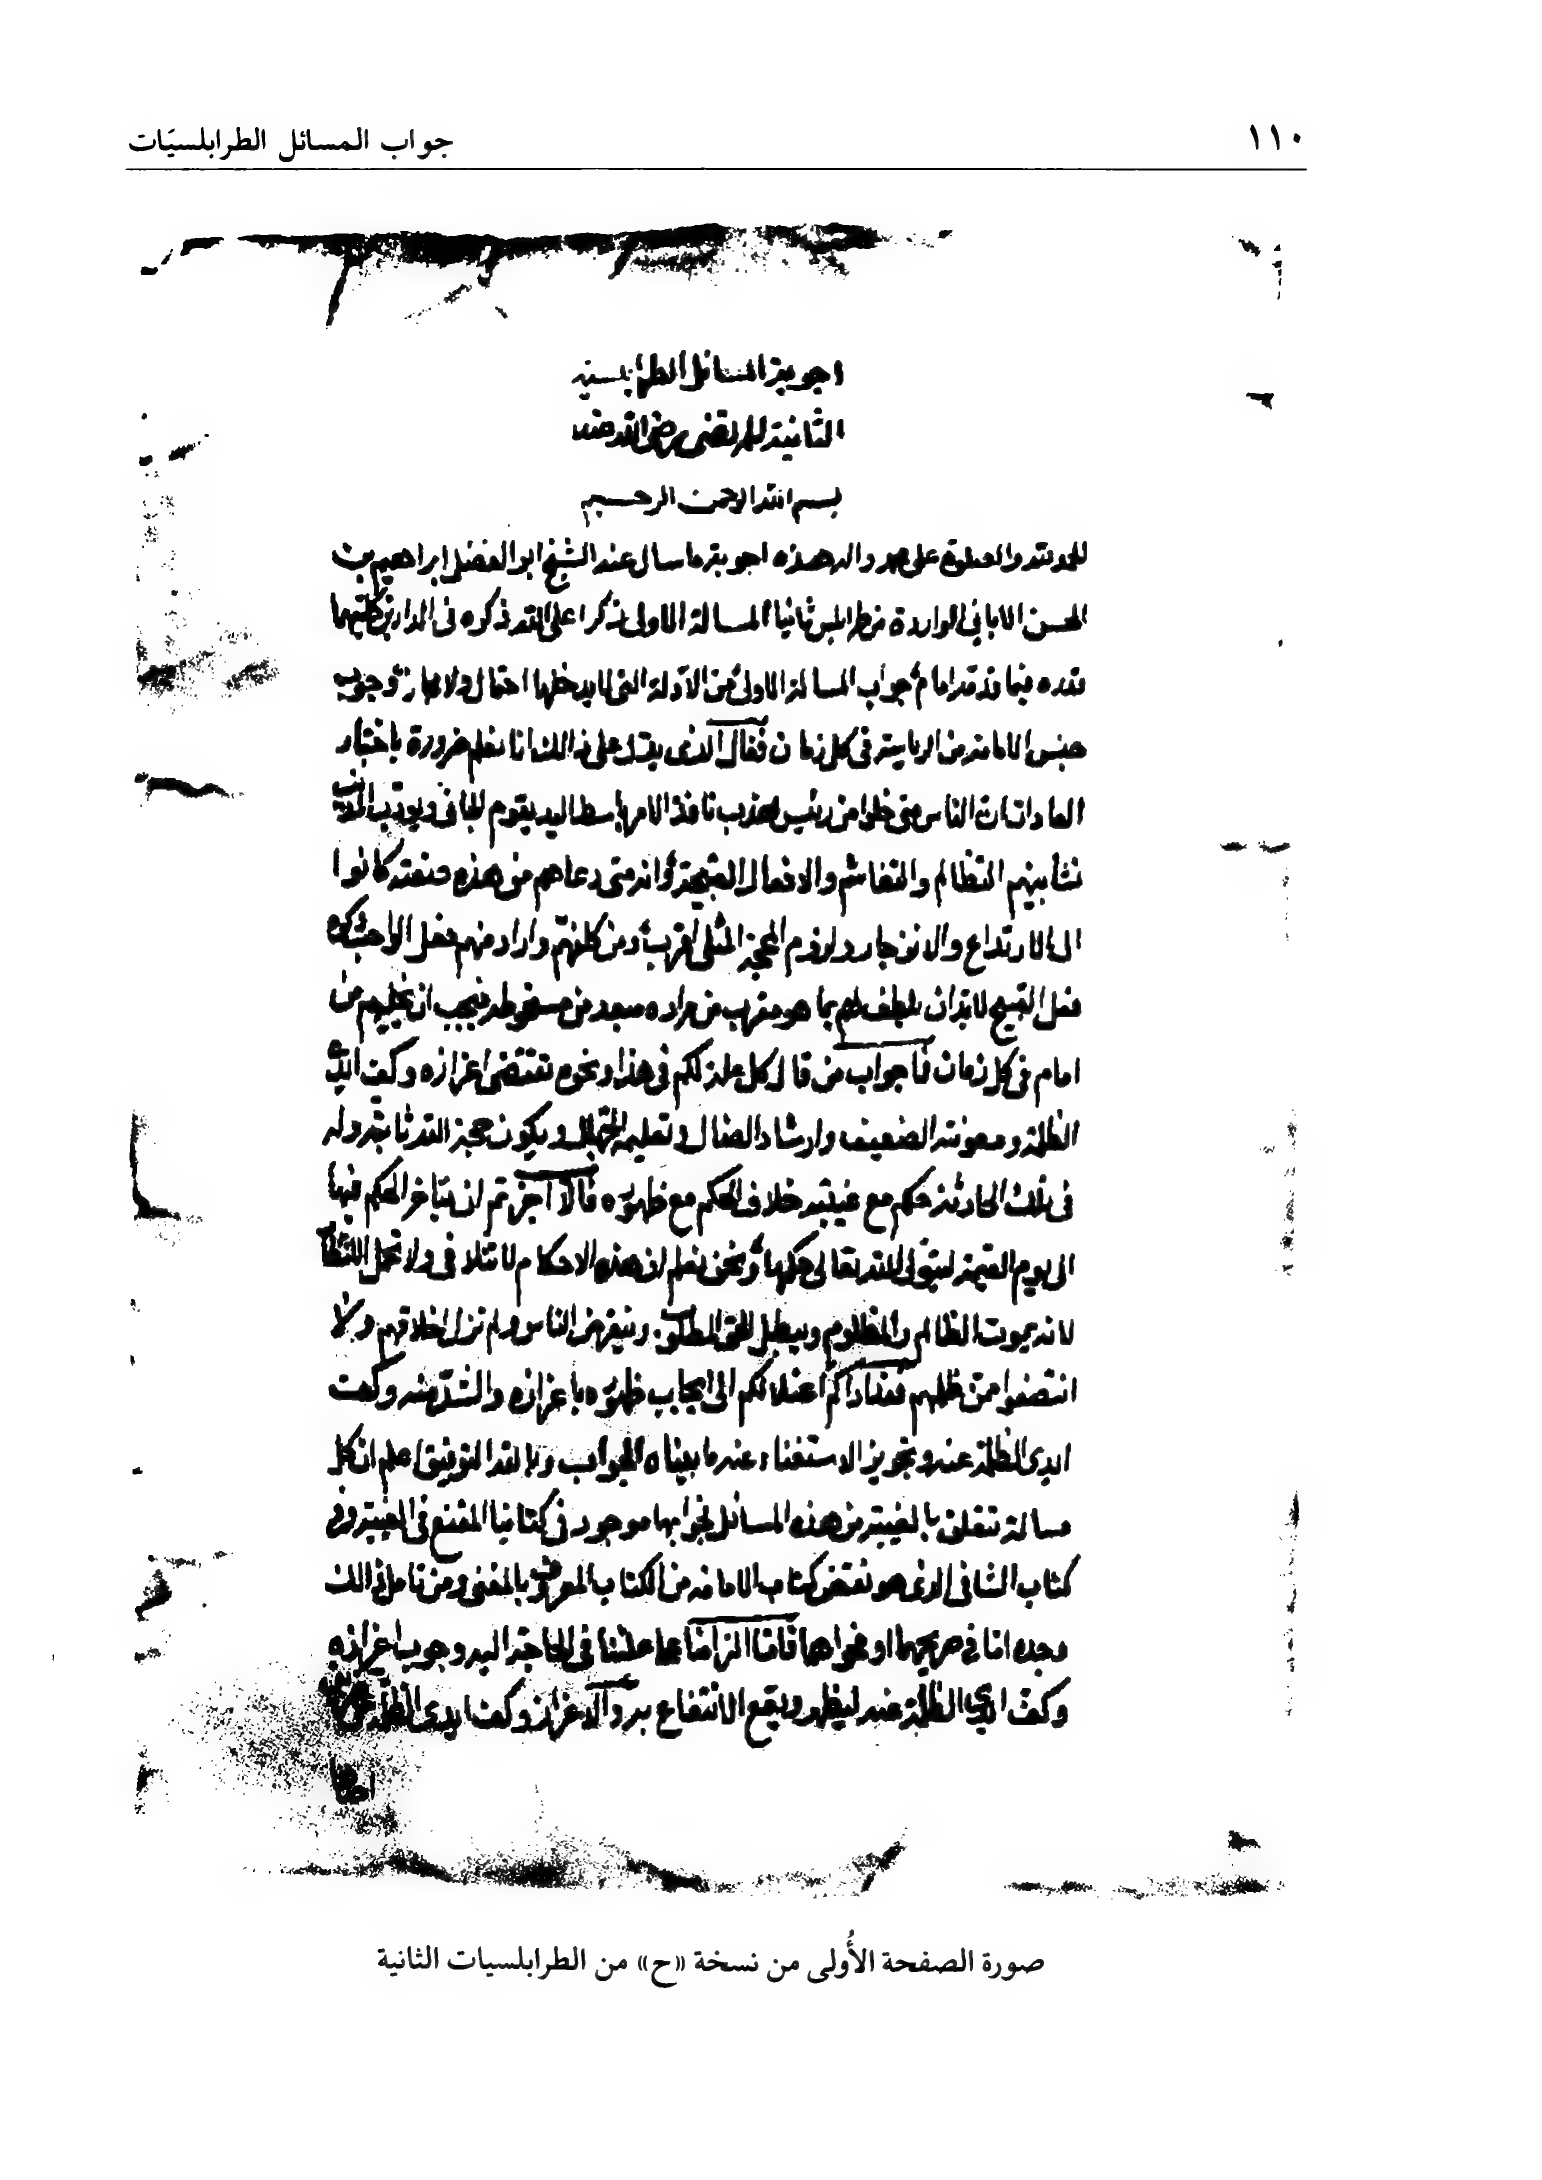 ١١٠
جواب المسائل الطرابلسيّات
اجوبة المسائل الطرابلسية
الثانية للمرتضى رضى الله عنه
بسم الله الرحمن الرحيم
الحمد لله والصلوة على محمد واله هذه اجوبة ما سال عنه الشيخ ابو الفضل ابراهيم بن
الحسن الابانى الواردة من طرابلس ثانيا المسالة الاولى ذكرا على الله ذكره فى الدارين كلتيهما
قدره فيما قدمه امام جواب المسالة الاولى من الادلة التى لا يدخلها احتمال ولا مجاز وجوب
جنس الامامة من الرياسة فى كل زمان فقال الذى يدل على ذلك انا نعلم ضرورة باختبار
العادات ان الناس متى خلوا من رئيس مهذب نافذ الامر باسط اليد يقوم الجانى ويودب المذنب
نشأ بينهم التظالم والتغاشم والافعال القبيحة وانه متى دعاهم من هذه صفته كانوا
الى الارتداع والانزجار ولزوم المحجة المثلى اقرب ومن كلفهم واراد منهم فعل الواجب وكره
فعل القبيح لابد ان يلطف لهم بما هو مقرب من مراده مبعد من مسخوطه فيجب ان لا يخليهم من
امام فى كل زمان فما جواب من قال كل علة لكم فى هذا ونحوه تقتضى اعزازه وكف ايدى
الظلمة ومعونة الضعيف وارشاد الضال وتعليم الجهال ويكون حجة الله ثابتة وله
فى تلك الحادثة حكم مع غيبته خلاف الحكم مع ظهوره قال أاجزتم ان يتاخر الحكم فيها
الى يوم القيمة ليتولى الله تعالى حكمها ونحن نعلم ان هذه الاحكام لا تتلافى ولا تحمل
لانه يموت الظالم والمظلوم ويبطل الحق المطلوب وينقرض الناس ولم تزل اخلاقهم ولا
انتصفوا ممن ظلمهم فقداداكم اعتلالكم الى ايجاب ظهوره باعزازه والشد منه وكف
ايدى الظلمة عنه وتجويز الاستغناء عنه ما بيناه الجواب وبالله التوفيق اعلم ان كل
مسالة تتعلق بالغيبة من هذه المسائل فجوابها موجود فى كتابنا المقنع فى الغيبة وفى
كتاب الشافى الذى هو نقض كتاب الامامة من الكتاب المعروف بالمغنى ومن تامل ذلك
وجده اما فى صريحهما او فحواهما فاما الزامنا على علتنا فى الحاجة اليه وجوب اعزازه
وكف ايدى الظلمة عنه ليظهر ويقع الانتفاع به والاعزاز وكف ايدى الظلمة
صورة الصفحة الأُولى من نسخة «ح» من الطرابلسيات الثانية